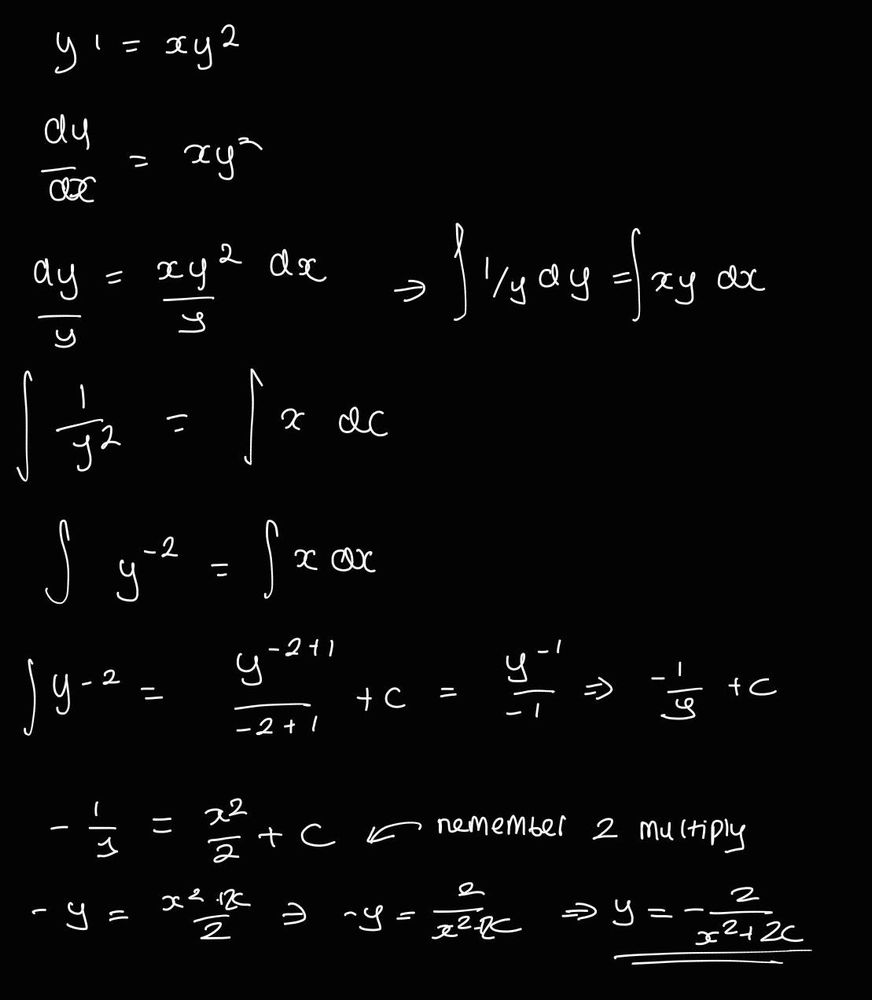 y' = xy²
dy/dx = xy²
dy/y = xy²/y dx ⇒ ∫ 1/y dy = ∫ xy dx
∫ 1/y² = ∫ x dc
∫ y⁻² = ∫ x dx
∫ y⁻² = y⁻²⁺¹/-2+1 + c = y⁻¹/-1 ⇒ -1/y + c
- 1/y = x²/2 + C ← remember 2 multiply
- y = x²+2c/2 ⇒ -y = 2/x²+2c ⇒ y = - 2/x²+2c